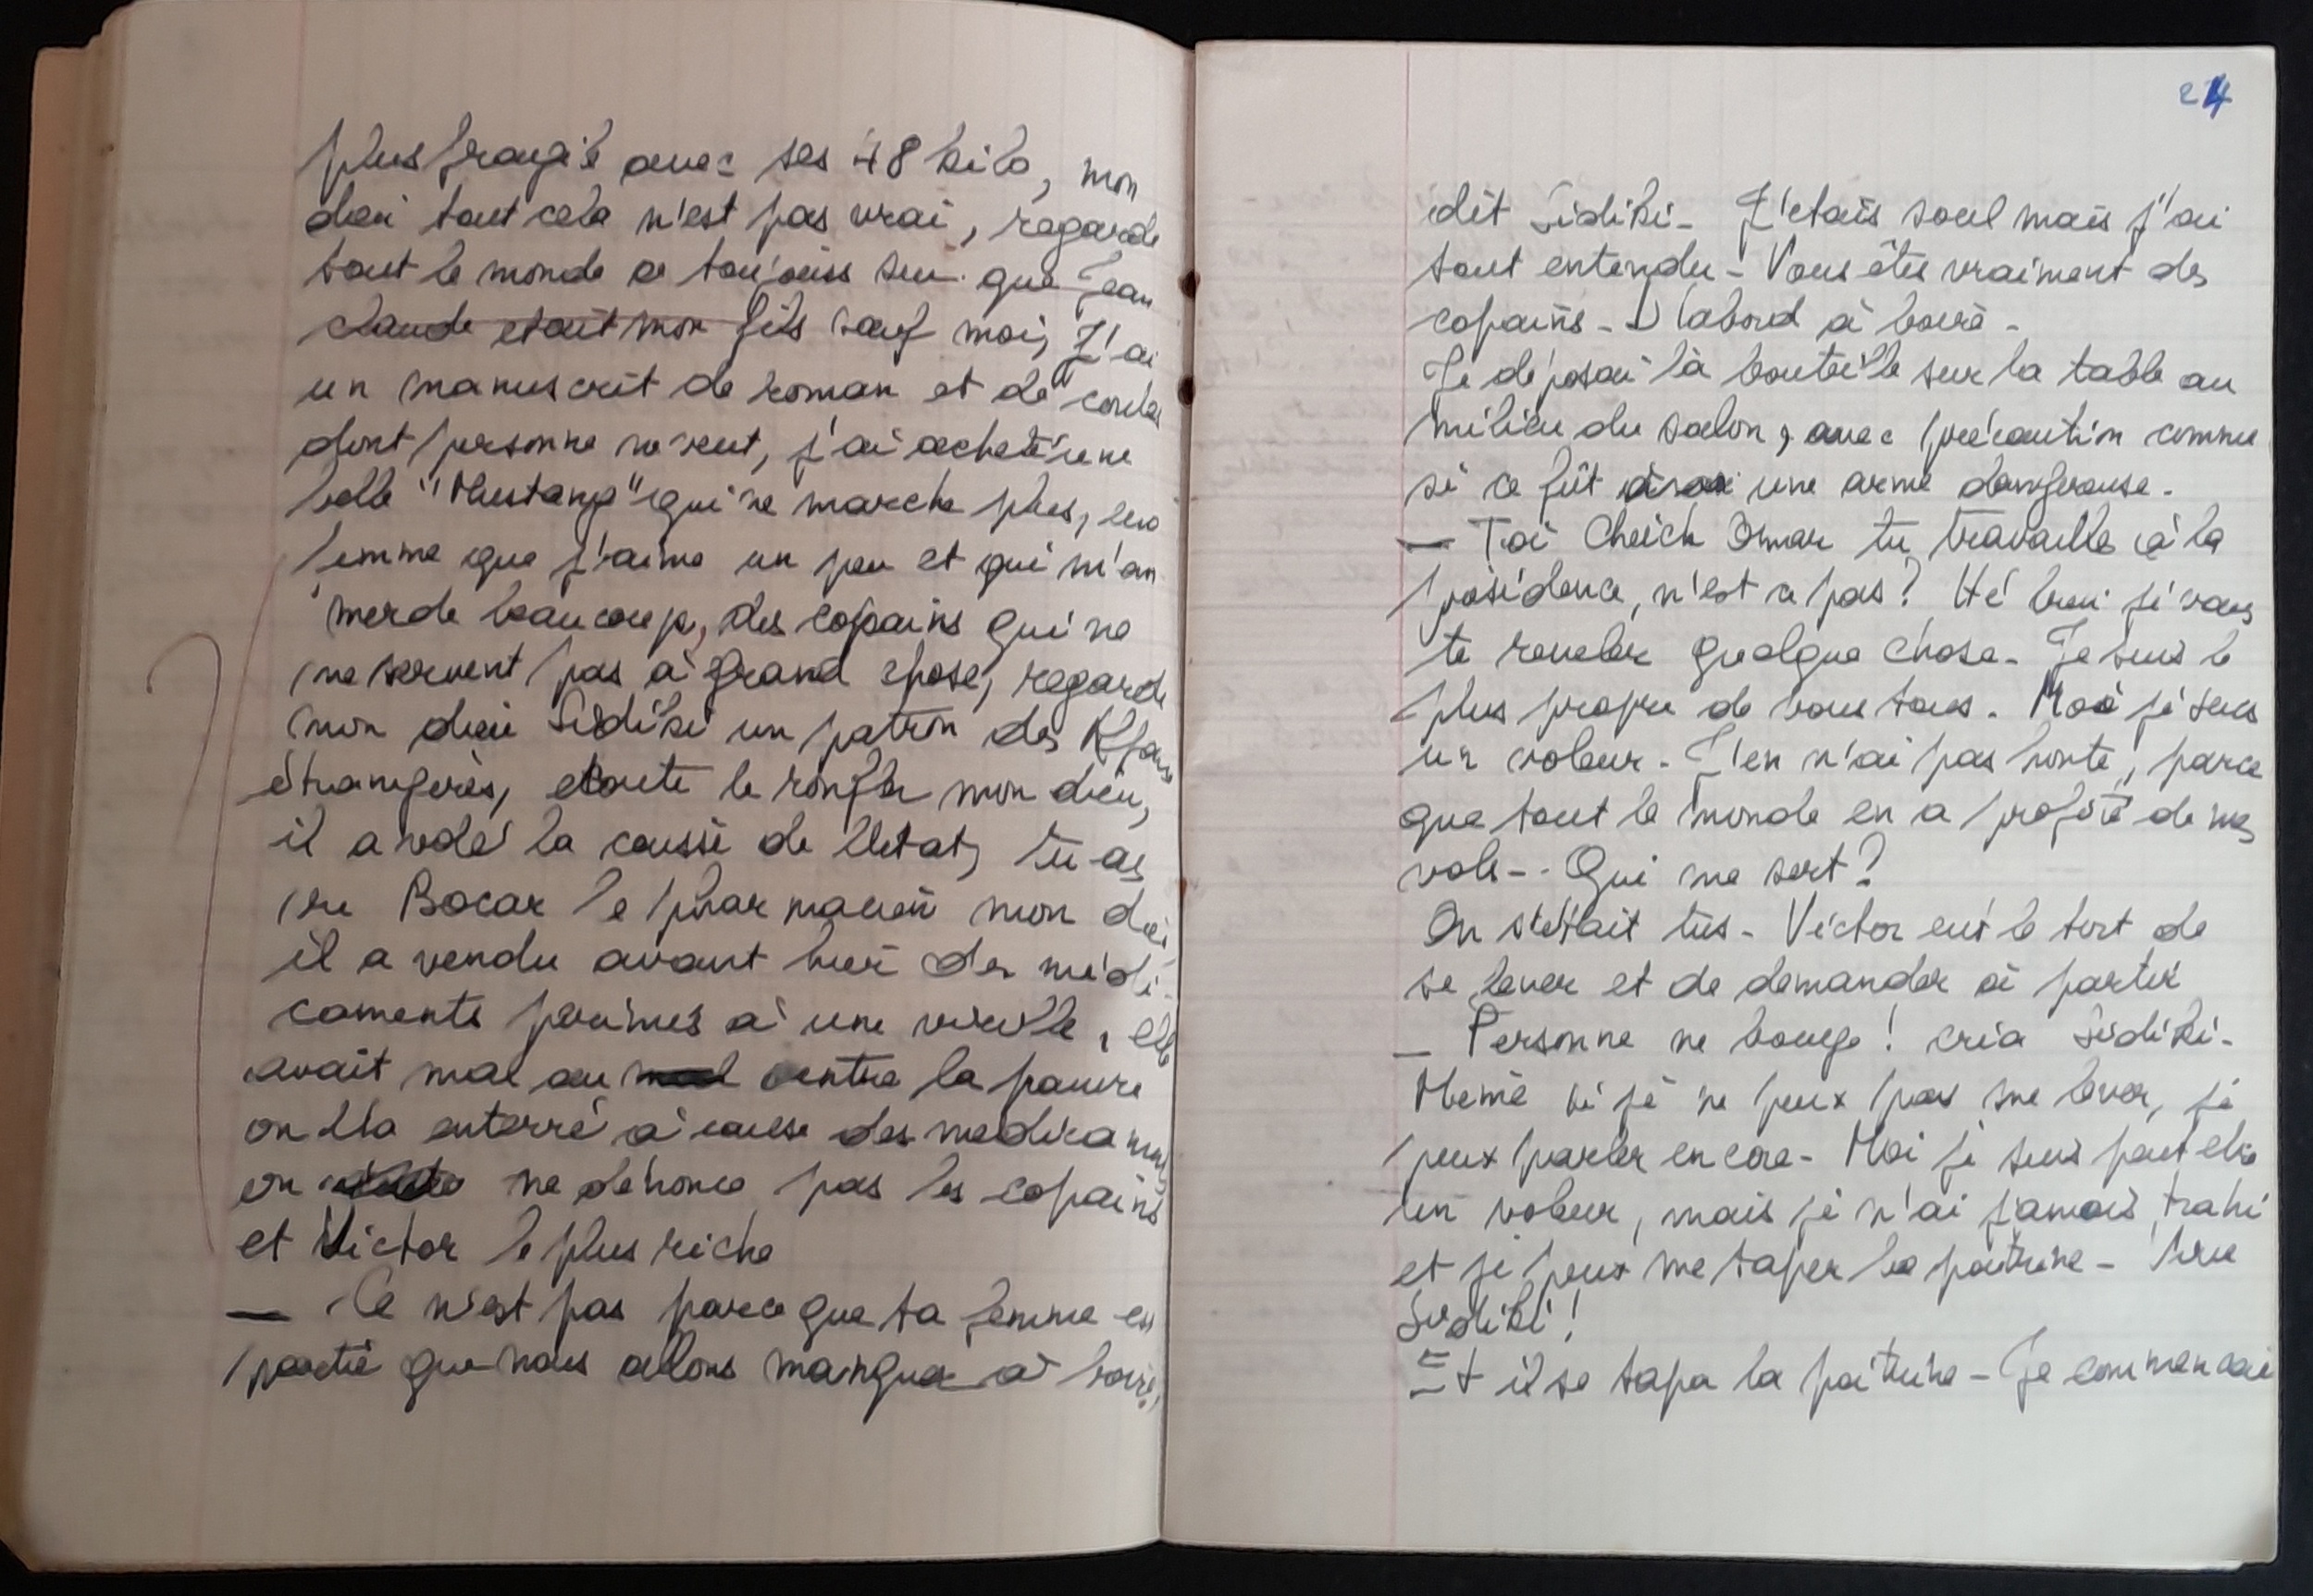 plus fragile avec ses 48 kilo, mon
dieu tout cela n'est pas vrai, regarde
tout le monde a toujours su que Jean
claude etait mon fils sauf moi, J'ai
un manuscrit de roman et de conte
dont personne ne veut, j'ai acheté une
belle "Mustang" qui ne marche plus, une
femme que j'aime un peu et qui m'em
merde beaucoup, des copains qui ne
me servent pas à grand chose, regarde
mon dieu Sidiki un patron des Affaires
étrangères, ecoute le ronfler mon dieu,
il a vidé la caisse de l'Etat, tu as
vu Bocar le pharmacien mon dieu
il a vendu avant hier des médi-
caments perimés à une vieille, elle
avait mal au ventre la pauvre
on l'a enterré à cause des medicaments
on ne dénonce pas les copains
et Victor le plus riche
— Ce n'est pas parce que ta femme est
partie que nous allons manquer à boire,
24
dit Sidiki - J'etais soul mais j'ai
tout entendu - Vous êtes vraiment des
copains - D'abord à boire -
Je déposai la bouteille sur la table au
milieu du salon, avec précaution comme
si ce fût une arme dangereuse.
— Toi Cheick Omar tu travailles à la
présidence, n'est ce pas? Hé bien je vais
te reveler quelque chose - Je suis le
plus propre de vous tous. Moi je suis
un voleur - J'en n'ai pas honte, parce
que tout le monde en a profité de mes
vols -- Qui me sert?
On s'était tus - Victor eut le tort de
se lever et de demander à partir
— Personne ne bouge! cria Sidiki -
Meme si je ne peux pas me lever, je
peux parler encore - Moi je suis peut etre
un voleur, mais je n'ai jamais trahi
et je peux me taper la poitrine - Vive
Sidiki!
Et il se tapa la poitrine - Je commencai